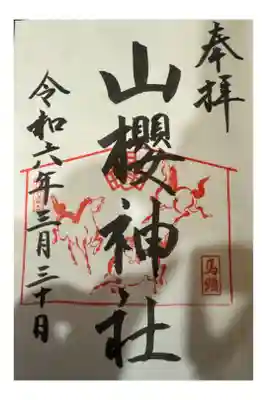 奉拝
山櫻神社
令和六年三月三十日